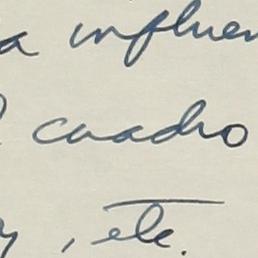 a influen
cuadro
, etc.